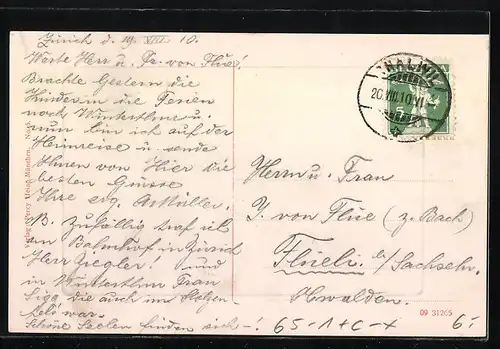 Zürich d. 19. VIII. 10.
Werte Herr u. Fr. von Flüe!
Brachte Gestern die
Kinder in die Ferien
nach Winterthur u.
nun bin ich auf der
Heimreise u. sende
Ihnen von Hier die
besten Grüsse
Ihre erg. A. Müller.
NB. Zufällig traf ich
am Bahnhof in Zürich
Herr Ziegler! und
in Winterthur Frau
die auch im
war.
Schöne Seelen finden sich!
THALWIL
20.VIII.10.VI
5
Herrn u. Frau
J. von Flüe (z. Bach)
Flüeli b/Sachseln.
Obwalden.
09 31265
65-1+C-x
6.-